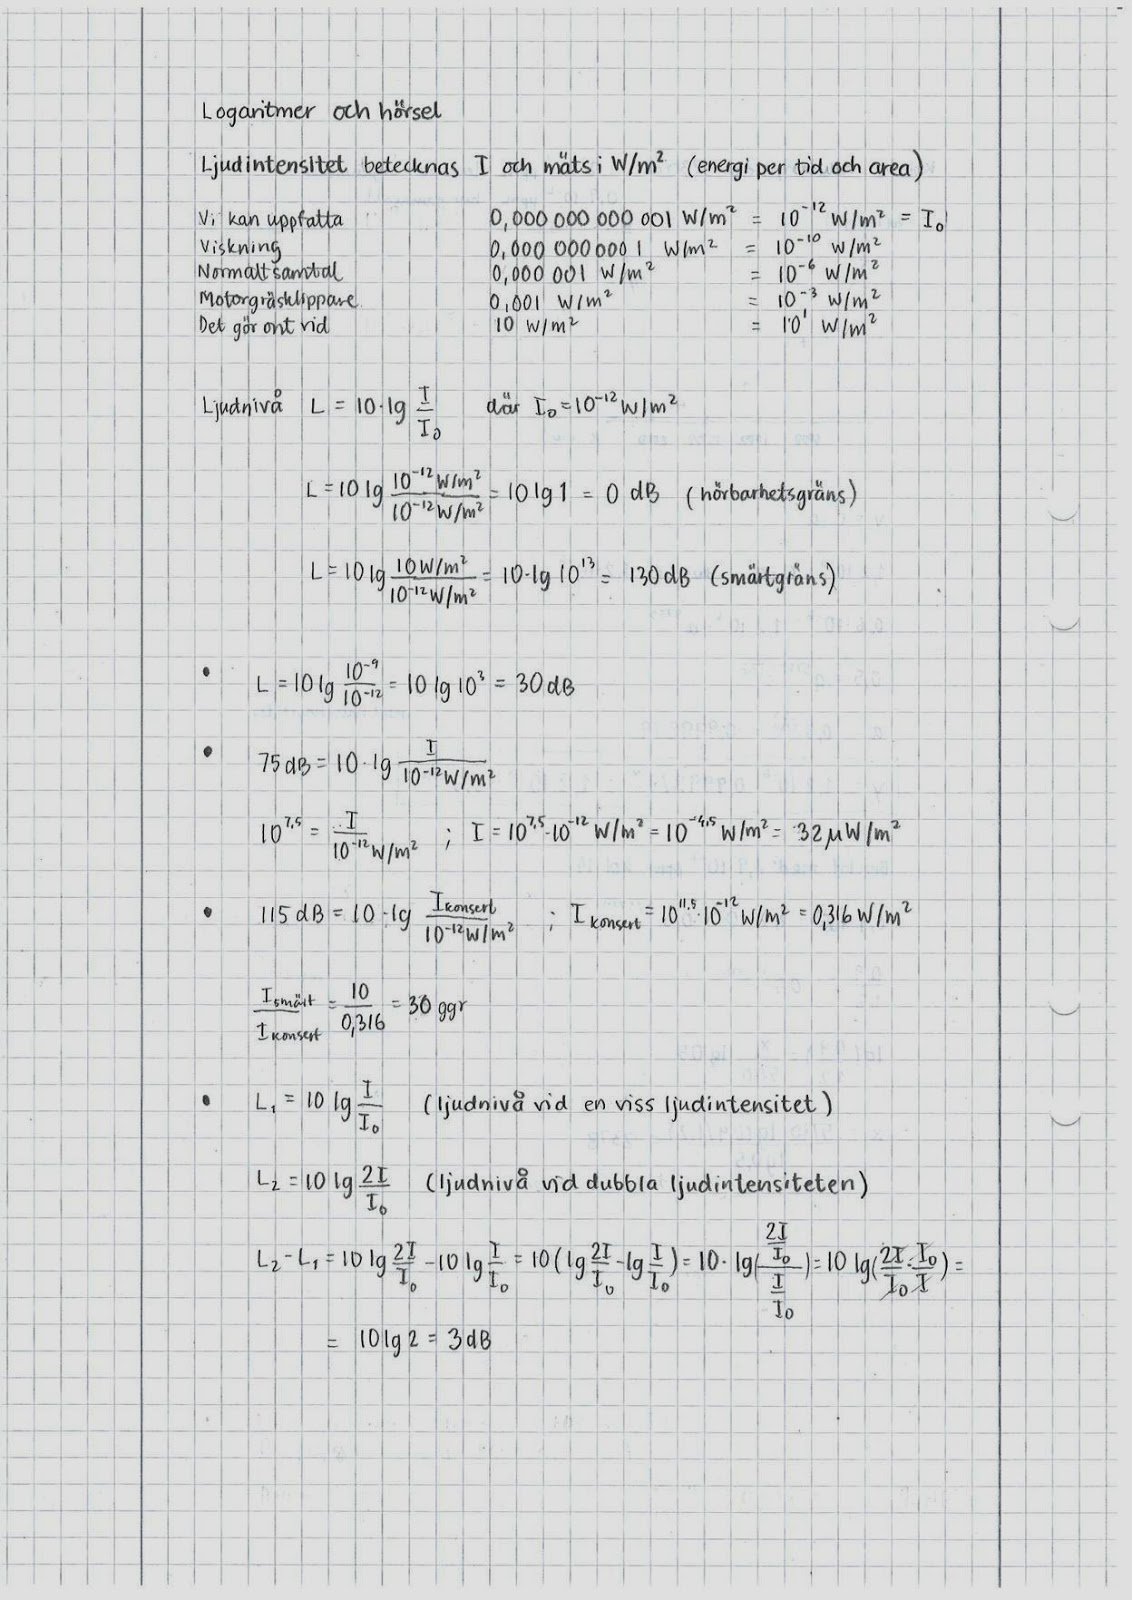 Logaritmer och hörsel
Ljudintensitet betecknas I och mäts i W/m² (energi per tid och area)
Vi kan uppfatta 0,000 000 000 001 W/m² = 10⁻¹² W/m² = I₀
Viskning 0,000 000 000 1 W/m² = 10⁻¹⁰ W/m²
Normalt samtal 0,000 001 W/m² = 10⁻⁶ W/m²
Motorgräsklippare 0,001 W/m² = 10⁻³ W/m²
Det gör ont vid 10 W/m² = 10¹ W/m²
Ljudnivå L = 10·lg I/I₀ där I₀ = 10⁻¹² W/m²
L = 10 lg 10⁻¹² W/m² / 10⁻¹² W/m² = 10 lg 1 = 0 dB (hörbarhetsgräns)
L = 10 lg 10 W/m² / 10⁻¹² W/m² = 10·lg 10¹³ = 130 dB (smärtgräns)
• L = 10 lg 10⁻⁹/10⁻¹² = 10 lg 10³ = 30 dB
• 75 dB = 10·lg I / 10⁻¹² W/m²
10^7,5 = I / 10⁻¹² W/m² ; I = 10^7,5·10⁻¹² W/m² = 10^-4,5 W/m² = 32 μW/m²
• 115 dB = 10·lg I konsert / 10⁻¹² W/m² ; I konsert = 10^11.5·10⁻¹² W/m² = 0,316 W/m²
I smärt / I konsert = 10/0,316 = 30 ggr
• L₁ = 10 lg I/I₀ (ljudnivå vid en viss ljudintensitet)
L₂ = 10 lg 2I/I₀ (ljudnivå vid dubbla ljudintensiteten)
L₂ - L₁ = 10 lg 2I/I₀ - 10 lg I/I₀ = 10 (lg 2I/I₀ - lg I/I₀) = 10·lg((2I/I₀)/(I/I₀)) = 10 lg(2I/I₀ · I₀/I) =
= 10 lg 2 = 3 dB